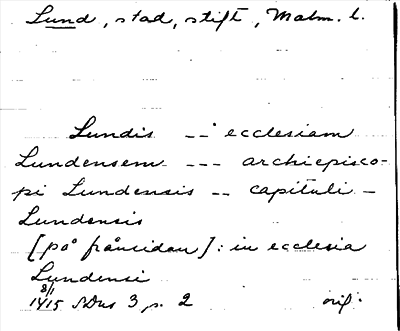 Lund, stad, stift, Malm. l.
Lundis -- ecclesiam
Lundensem --- archiepisco-
pi Lundensis -- capituli -
Lundensis
[på frånsidan]: in ecclesia
Lundensi
8/1
1415 SDns 3 s. 2 orig.